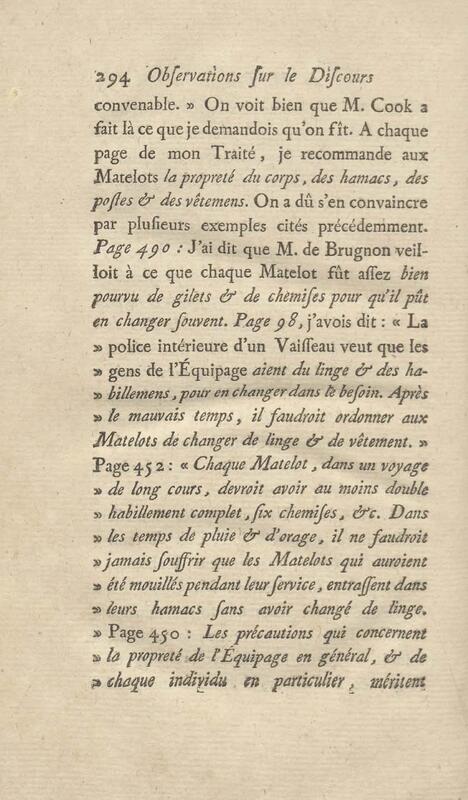 294 Obſervations ſur le Diſcours
convenable. » On voit bien que M. Cook a
fait là ce que je demandois qu'on fît. A chaque
page de mon Traité, je recommande aux
Matelots la propreté du corps, des hamacs, des
poſtes & des vêtemens. On a dû s'en convaincre
par pluſieurs exemples cités précédemment.
Page 490 : J'ai dit que M. de Brugnon veil-
loit à ce que chaque Matelot fût aſſez bien
pourvu de gilets & de chemiſes pour qu'il pût
en changer ſouvent. Page 98, j'avois dit : « La
» police intérieure d'un Vaiſſeau veut que les
» gens de l'Équipage aient du linge & des ha-
» billemens, pour en changer dans le beſoin. Après
» le mauvais temps, il faudroit ordonner aux
Matelots de changer de linge & de vêtement. »
Page 452 : « Chaque Matelot, dans un voyage
» de long cours, devroit avoir au moins double
» habillement complet, ſix chemiſes, &c. Dans
» les temps de pluie & d'orage, il ne faudroit
» jamais ſouffrir que les Matelots qui auroient
» été mouillés pendant leur ſervice, entraſſent dans
» leurs hamacs ſans avoir changé de linge.
» Page 450 : Les précautions qui concernent
» la propreté de l'Équipage en général, & de
» chaque individu en particulier, méritent